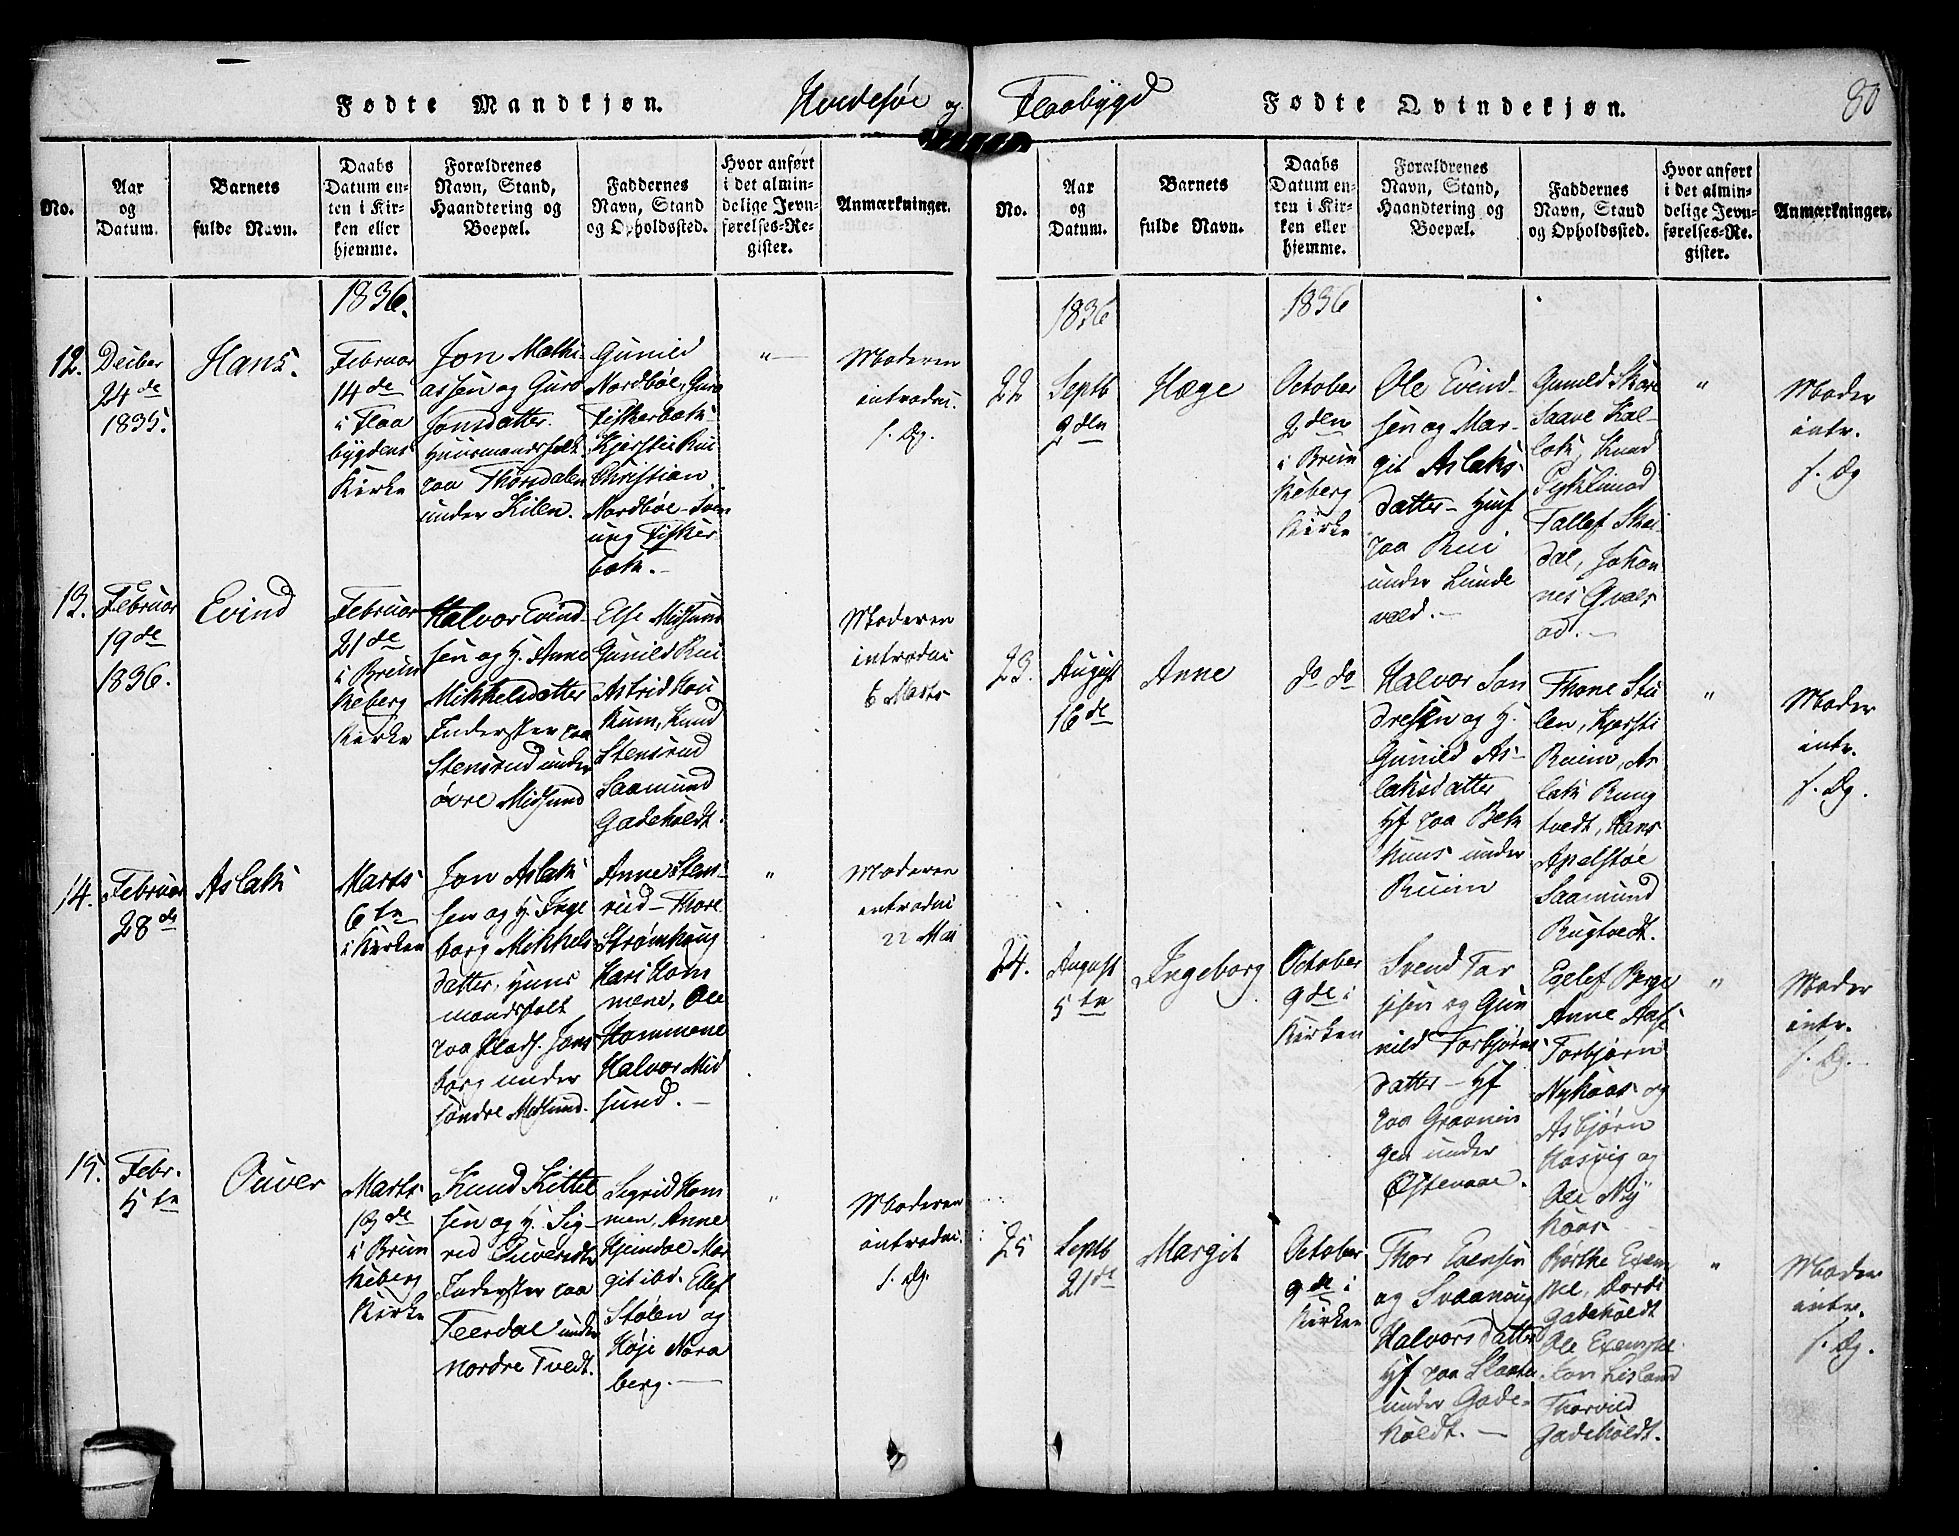 Fødte Mandkjøn.
Hvidesøe og
No.
Aar
og
Datum.
Barnets
fulde Navn.
Daabs
Datum en-
ten i Kir-
ken eller
hjemme.
Forældrenes
Navn, Stand,
Haandtering og
Boepæl.
Faddernes
Navn, Stand
og Opholdssted.
Hvor anført
i det almin-
delige Jevn-
førelses-Re-
gister.
Anmærkninger.
1836.
12.
Decber
24de
1835.
Hans.
Februar
14de
i Flaa
bygdens
Kirke
Jon Mathi-
assen og Guro
Jonsdatter.
Huusmandsfolk
paa Thorsdalen
under Kilen.
Gunild
Nordbøe, Guro
Fiskerbæk
Kjersti Rui
Christian
Nordbøe - Svein
ung Fisker
bæk.-
"
Moderen
introdu.
s. Dg.
13.
Februar
19de
1836.
Evind
Februar
21de
i Brun
keberg
Kirke
Halvor Evind-
sen og H. Anne
Mikkelsdatter
Inderster paa
Stensrud under
øvre Midsund
Else Midsund
Gunild Rui
Astrid Hou
kum, Knud
Stensrud
Saamund
Gadeholdt.
Moderen
introdu
6 Marts
14.
Februar
28de
Aslak
Marts
6te
i Kirken
Jon Aslak
sen og H. Inge
borg Mikkels
datter. Huus
mandsfolk
paa Plads. Jons
borg under
søndre Midsund.
Anne Stens-
rud - Thore
Strømhaug
Kari Hom
mene, Ole
Hommene
Halvor Mid
sund. -
"
Moderen
introdui
22 Mai
15.
Febr.
5te
Ouver
Marts
13de
i Brun
keberg
Kirke
Knud Kittel
sen og H. Sig-
rid Ouversdtr
Inderster paa
Teerdal under
nordre Tvedt.
Sigrid Hom
men, Anne
Hjemdal Mar
git ibd. Ellef
Stølen og
Høje Nora
berg. -
"
Moderen
introdu.
s. Dg.
Flaabygd
Fødte Qvindekjøn.
80
No.
Aar
og
Datum.
Barnets
fulde Navn.
Daabs
Datum en-
ten i Kir-
ken eller
hjemme.
Forældrenes
Navn, Stand,
Haandtering og
Boepæl.
Faddernes
Navn, Stand
og Opholdssted.
Hvor anført
i det almin-
delige Jevn-
førelses-Re-
gister.
Anmærkninger.
1836
1836
22
Septb
9den
Hæge
October
2den
i Brun
keberg
Kirke
Ole Evind-
sen og Mar-
git Aslaks-
datter - Huusf
paa Rui
under Lunde
vald. -
Gunild Skore
Saave Kal-
lak, Knud
Tallef Skei
dal, Johan
nes Qvals
od. -
"
Moder
intr.
s. Dg
23.
August
16de
Anne
do do
Halvor Son
dresen og H.
Gunild As-
laksdatter
Hf paa Bek
huus under
Ruim
Thone Stu
len, Kjersti
Ruim, As
lak Rung
tvedt, Hans
Apelstøe
Saamund
Rugtvedt.
"
Moder
intr.
s. Dg.
24.
August
5te
Ingeborg
October
9de i
Kirken
Svend Tar
jesen og Gun
nild Torbjørns
datter - Hf
paa Graanin
gen under
Østevaae.
Egelef Berge
Anne Aase
Torbjørn
Nykaas og
Asbjørn
Haasvig og
Ole Ny
kaas
"
Moder
intr.
s. Dg.
25
Septb
21de
Margit
October
9de i
Kirken
Thor Evensen
og Svaanaug
Halvorsdatter
Hf paa Slaatta
under Gade-
holdt. -
Børthe Exem
pel, Dordi
Gadeholdt
Ole Exempel
Jon Lisland
Thorvild
Gadeholdt.
"
Moder
intr.
s. Dg.